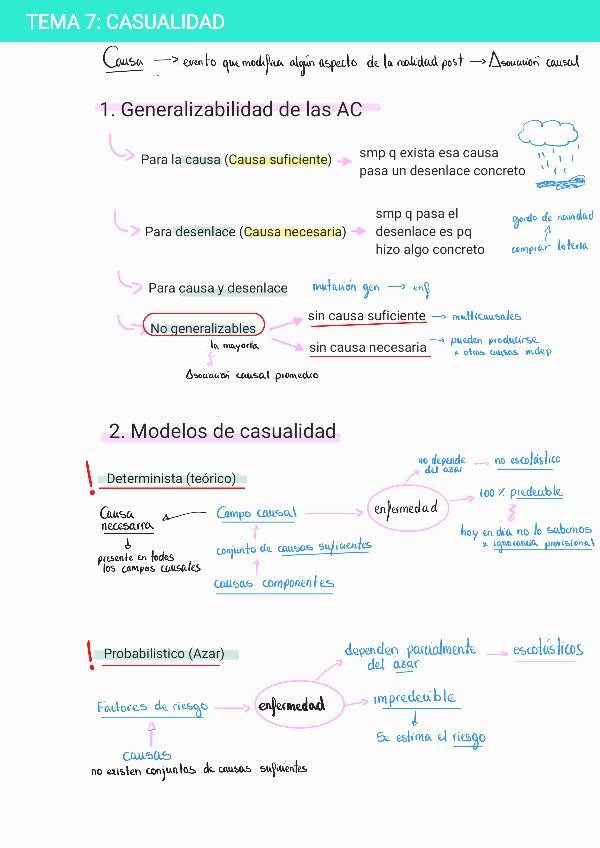 TEMA 7: CASUALIDAD
Causa → evento que modifica algún aspecto de la realidad post → Asociación causal
1. Generalizabilidad de las AC
Para la causa (Causa suficiente) → smp q exista esa causa
pasa un desenlace concreto
Para desenlace (Causa necesaria) → smp q pasa el
desenlace es pq
hizo algo concreto
gordo de navidad
↑
comprar lotería
Para causa y desenlace
mutación gen → enf
No generalizables
la mayoría
Asociación causal promedio
sin causa suficiente → multicausales
sin causa necesaria → pueden producirse
x otras causas indep
2. Modelos de casualidad
! Determinista (teórico)
Causa
necesarra
↓
presente en todos
los campos causales
← Campo causal → enfermedad
↑
conjunto de causas suficientes
↑
causas componentes
no depende
del azar → no escotástico
→ 100% predecible
hoy en día no lo sabemos
x ignorancia provisional
! Probabilistico (Azar)
Factores de riesgo → enfermedad
↑
causas
no existen conjuntos de causas suficientes
dependen parcialmente
del azar → escotásticos
→ impredecible
↓
Se estima el riesgo